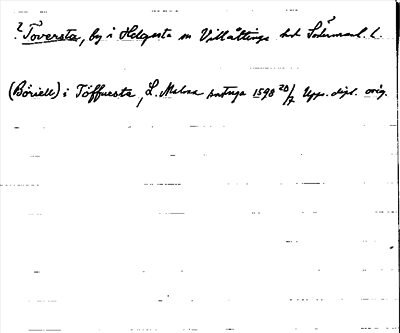 ? Töversta, by i Helgesta sn Villåttinge hd Södermanl. l.
(Böriell) i Töffuesta, L. Malma sortuga 1598 20/7 Upps. dipl. orig.